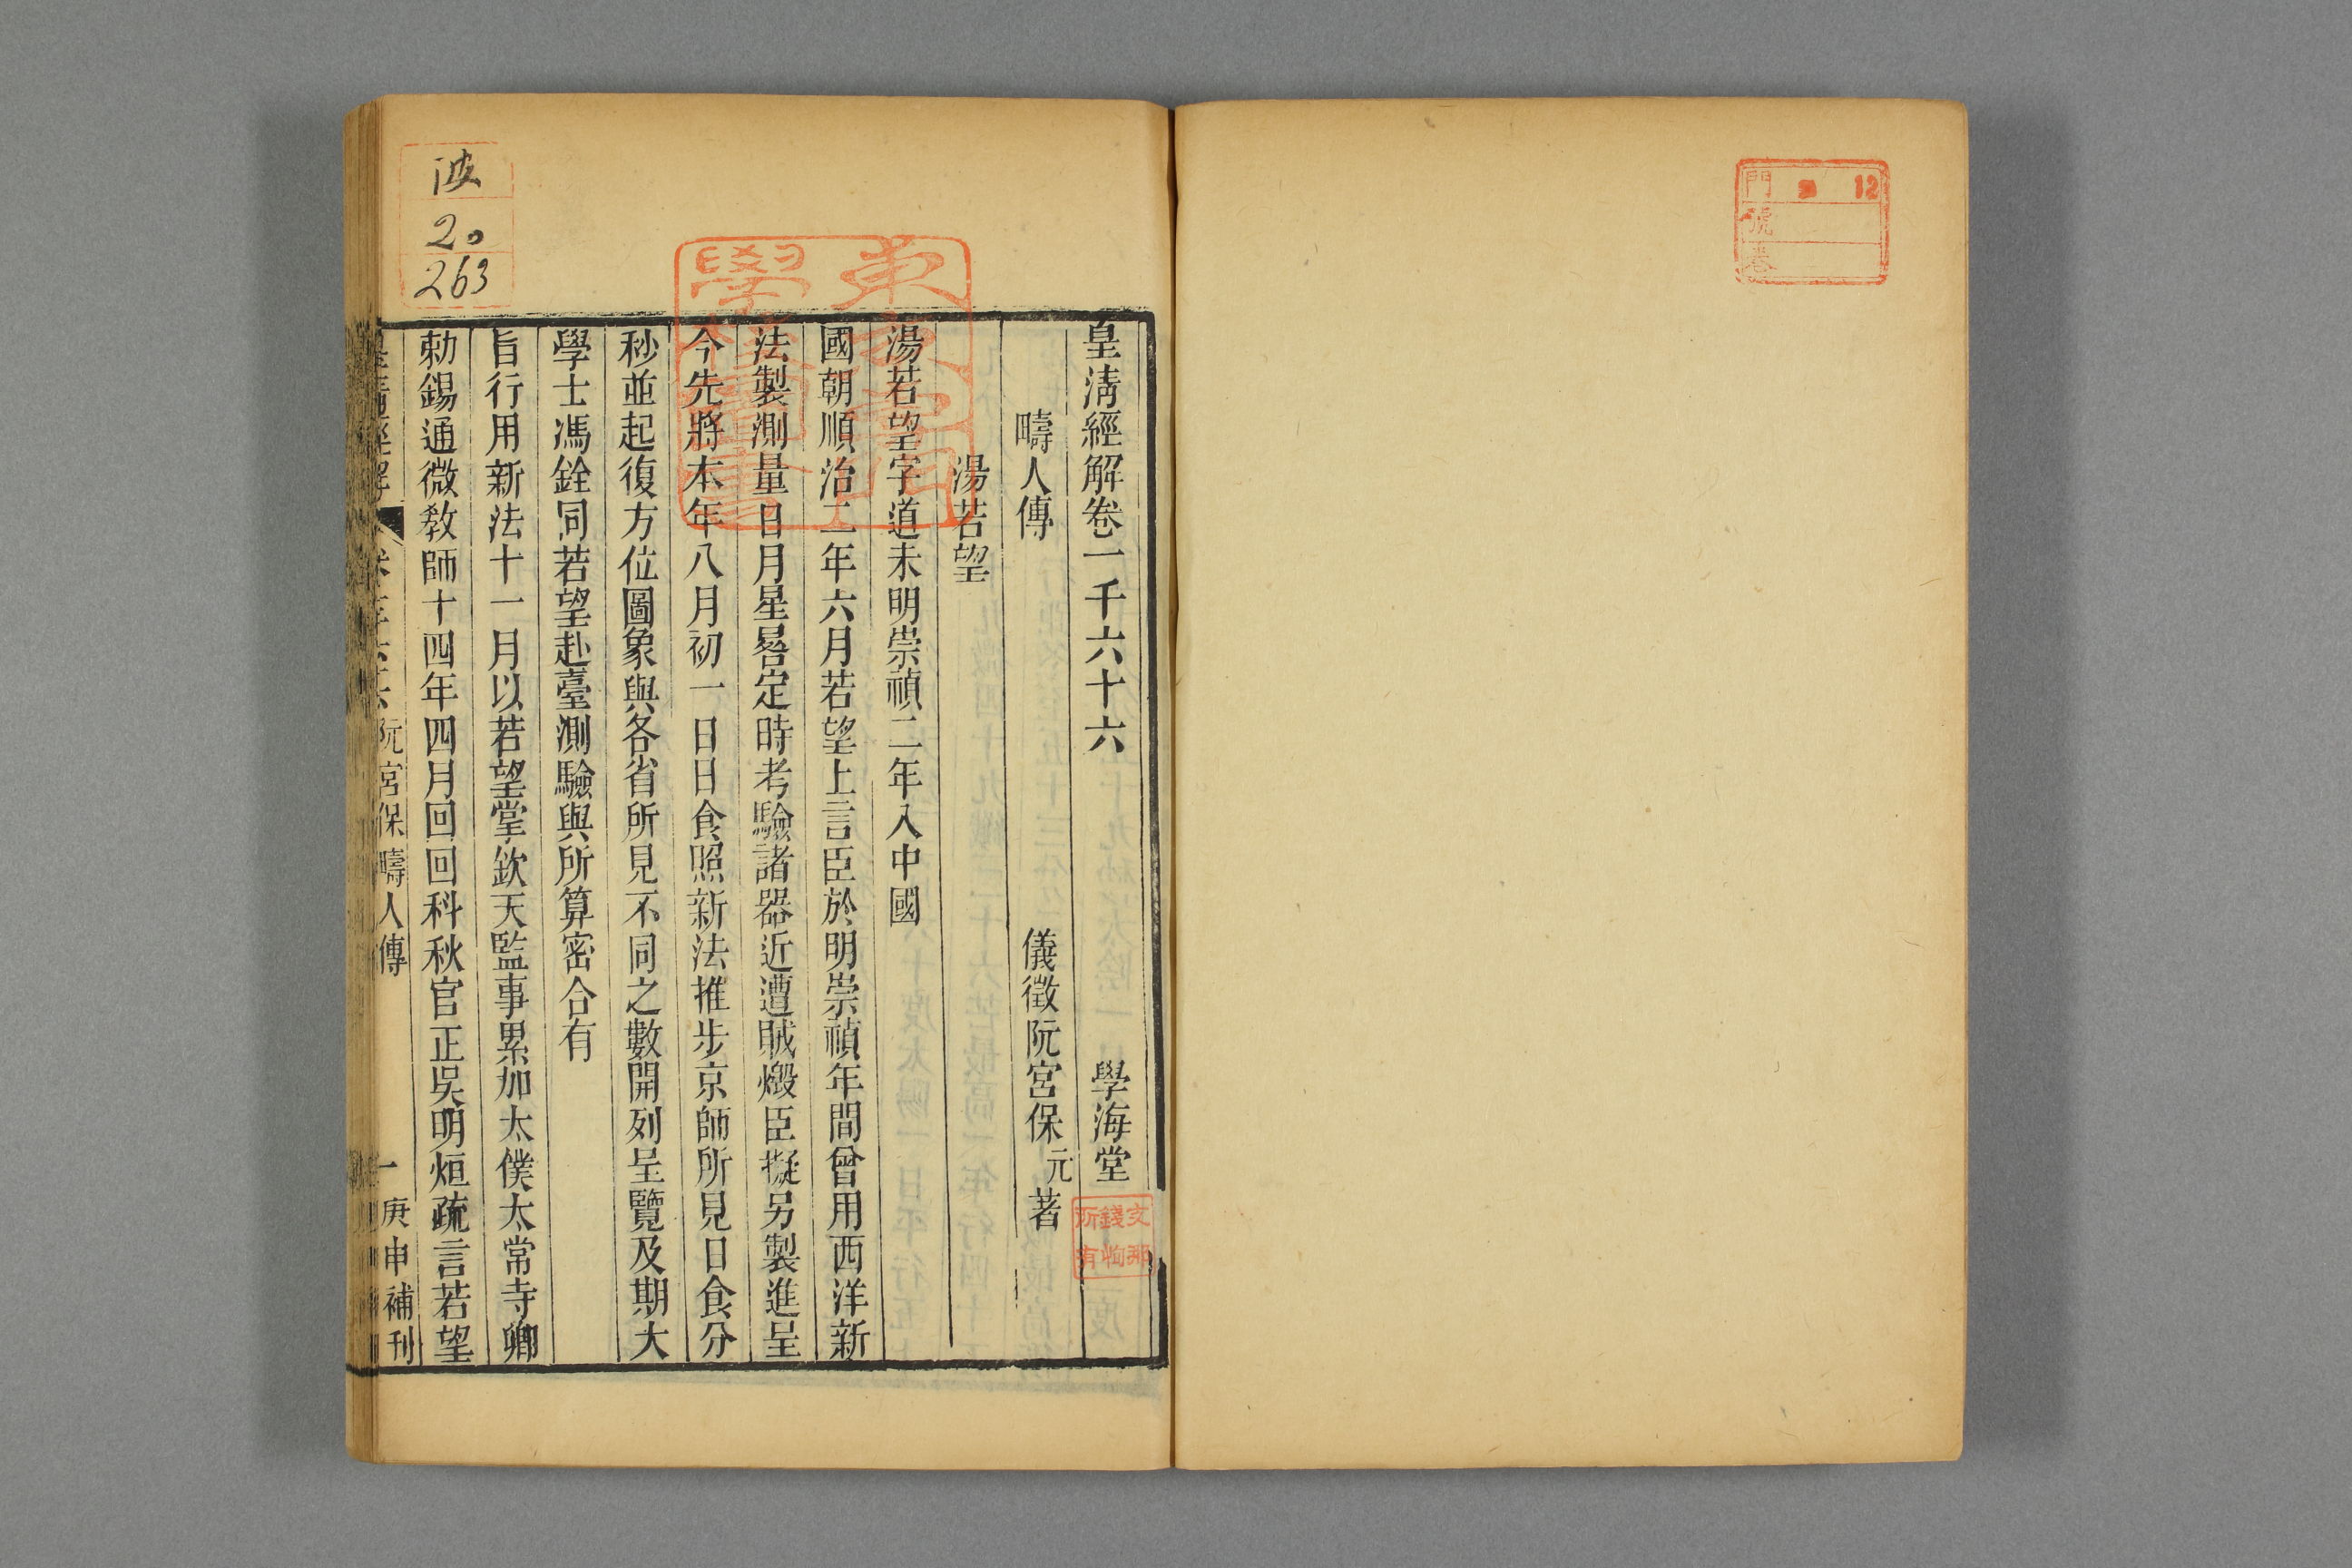 門 12
號
卷
皇淸經解卷一千六十六
學海堂
疇人傳
儀徵阮宮保元著
湯若望
湯若望字道未明崇禎二年入中國
國朝順治二年六月若望上言臣於明崇禎年間曾用西洋新
法製測量日月星晷定時考驗諸器近遭賊燬臣擬另製進呈
今先將本年八月初一日日食照新法推步京師所見日食分
秒並起復方位圖象與各省所見不同之數開列呈覽及期大
學士馮銓同若望赴臺測驗與所算密合有
旨行用新法十一月以若望掌欽天監事累加太僕太常寺卿
勅錫通微敎師十四年四月回回科秋官正吳明烜疏言若望
皇淸經解
阮宮保疇人傳
一
庚申補刊
波
20
263